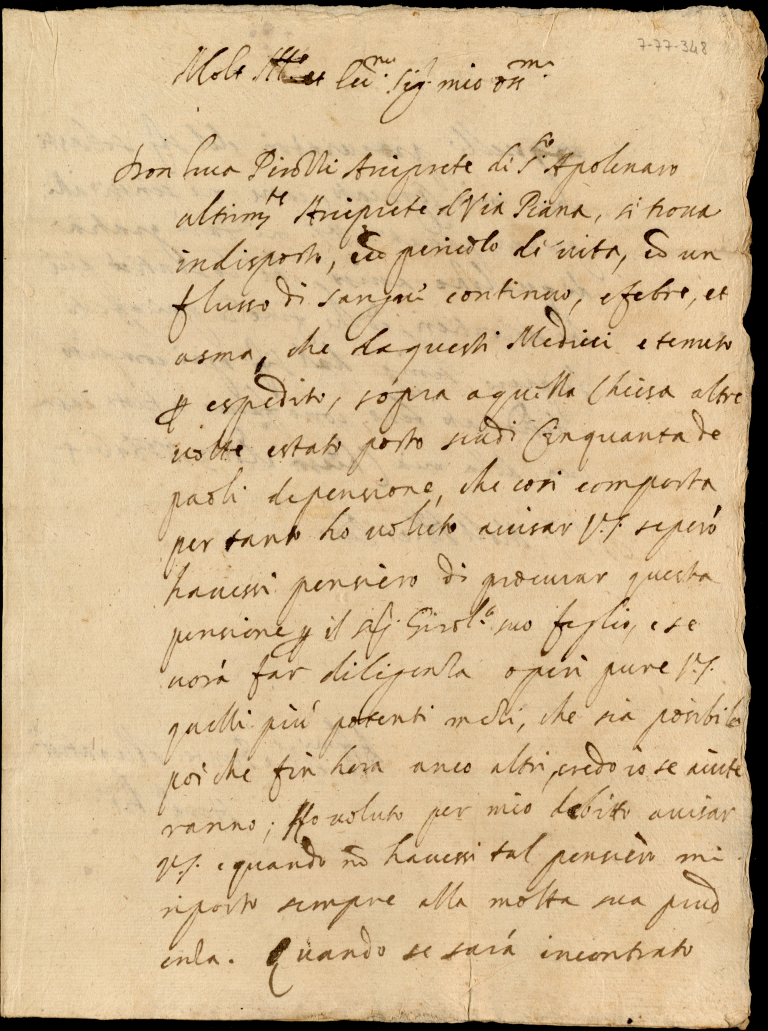 7-77-348
Molt Ill.re et Ecc.mo Sig. mio oss.mo
Don Luca Pirolli Arciprete di S.to Apolenaro
altrim.te Arciprete d Via Piana, si trova
indisposto, cō pericolo di vita, cō un
flusso di sangui continuo, e febre, et
asma, che da questi Medici e tenuto
p espedito, sopra aquella Chiesa altre
volte estato posto scudi Cinquanta de
paoli de pensione, che cosi comporta
per tanto ho voluto avisar V.S. seperó
havessi pensiero di procurar questa
pensione p il sig. Girol.o suo figlio, e se
vorá far diligenza operi pure V.S.
quelli piú potenti mezi, che sia posibile
poi che fin hora anco altri, credo io se aiute
ranno; Ho voluto per mio debitto avisar
V.S. e quando nō havessi tal pensiero mi
riporto sempre alla molta sua prud
enza. Quando se sará incontrato